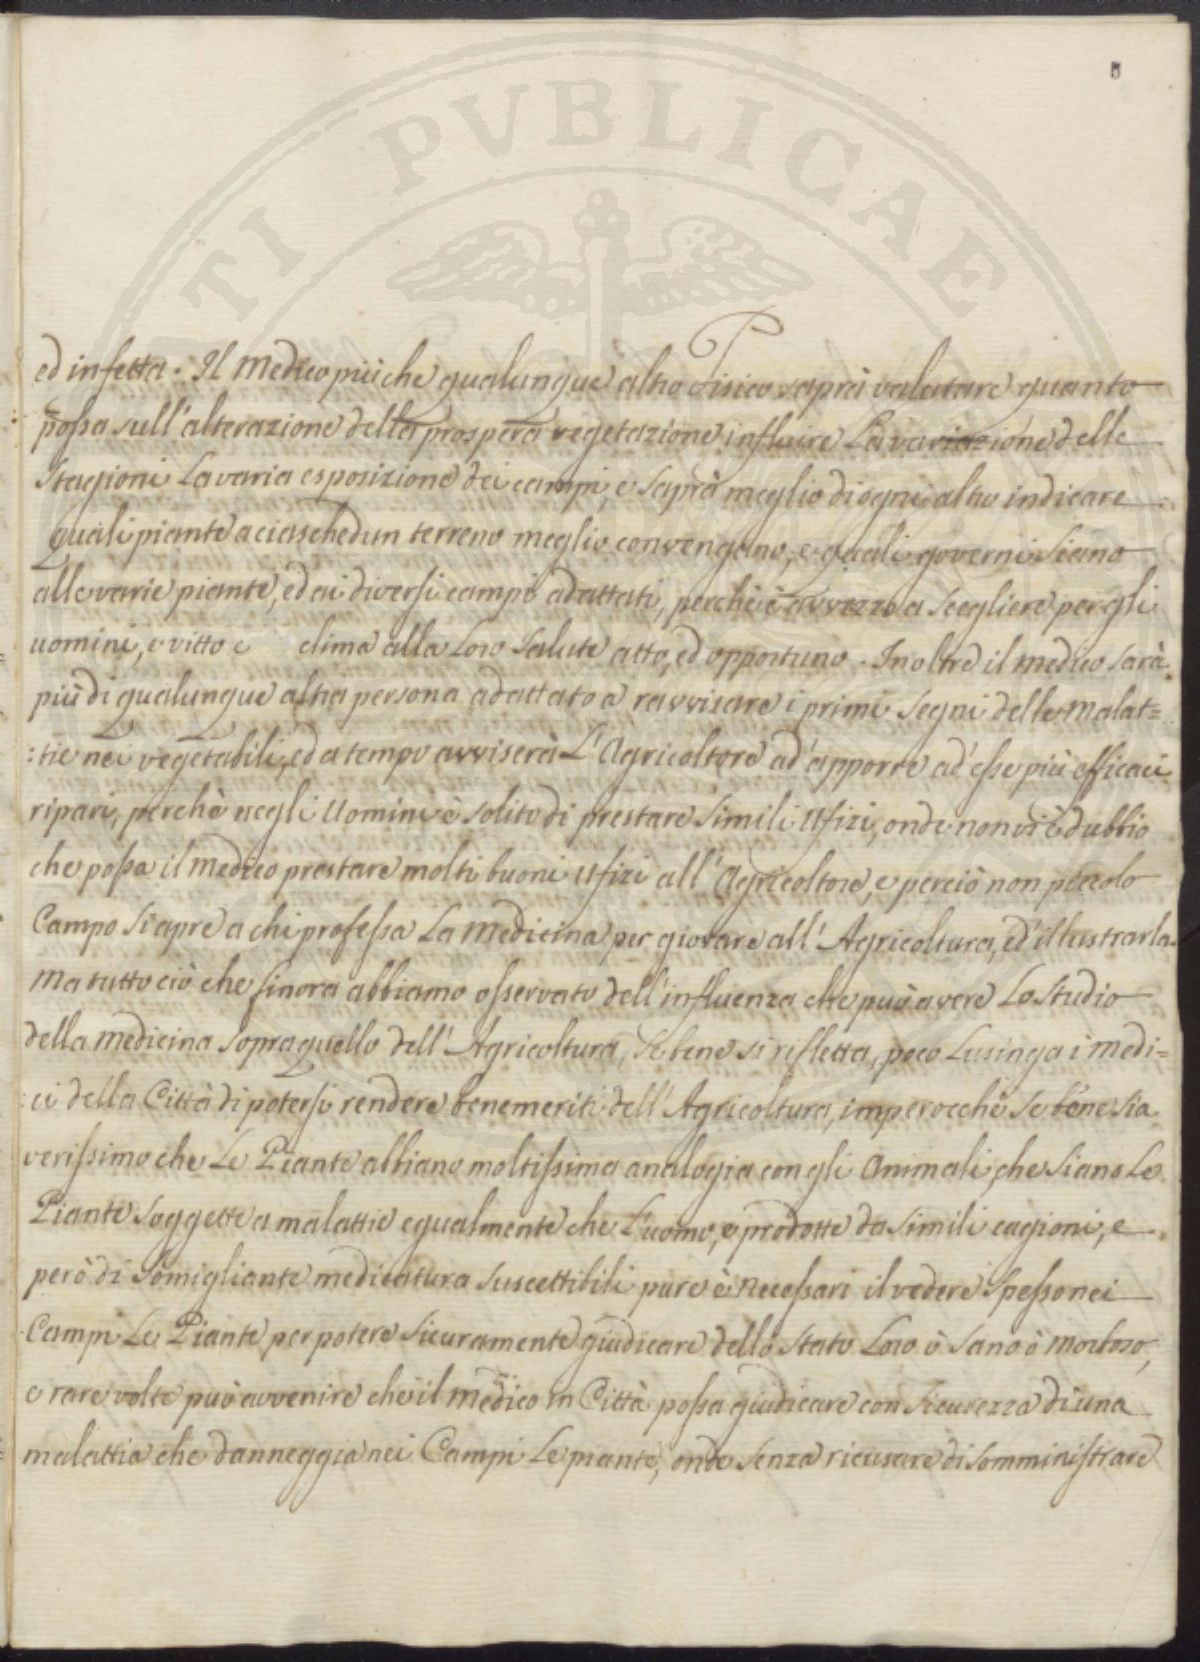 5
TI PVBLICAE
ed infetta. Il Medico più che qualunque altro Fisico saprà valutare quanto
possa sull'alterazione della prospera vegetazione influire La variazione delle
Stagioni La varia esposizione dei campi, e saprà meglio di ogni altro indicare
quali piante a ciaschedun terreno meglio convengano, e quali governi siano
alle varie piante, ed ai diversi campi adattati, perchè è avvezzo a Scegliere per gli
uomini, e vitto e clima alla Loro Salute atto, ed opportuno. Inoltre il medico sarà
più di qualunque altra persona adattato a ravvisare i primi Segni delle Malat=
:tie nei vegetabili, ed a tempo avviserà L'Agricoltore ad' apporre ad' esse più efficaci
ripari, perchè negli Uomini è solito di prestare Simili Ufizi, onde non vi è dubbio
che possa il Medico prestare molti buoni Ufizi all'Agricoltore, e perciò non piccolo
Campo Si apre a chi professa La Medicina per giovare all'Agricoltura, ed' illustrarla.
Ma tutto ciò che finora abbiamo osservato dell'influenza che può avere Lo Studio
della Medicina Sopra quello dell'Agricoltura, Se bene si rifletta, poco Lusinga i Medi=
:ci della Città di potersi rendere benemeriti dell'Agricoltura, imperocchè Se bene sia
verissimo che Le Piante abbiano moltissima analogia con gli Animali, che Siano Le
Piante Soggette a malattie egualmente che L'uomo, e prodotte da Simili cagioni, e
però di Somigliante medicatura Suscettibili pure è Necessari il vedere Spesso nei
Campi Le Piante per potere Sicuramente giudicare dello Stato Loro ò Sano ò Morboso,
e rare volte può avvenire che il medico in Città possa giudicare con Sicurezza di una
malattia che danneggia nei Campi Le piante, onde Senza ricusare di Somministrare